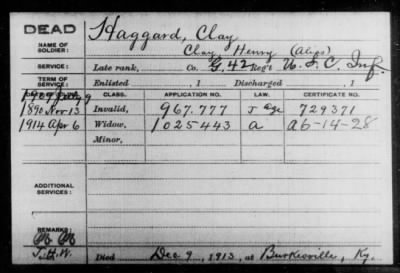 DEAD
NAME OF SOLDIER:
Haggard, Clay
Clay, Henry (Alias)
SERVICE:
Late rank, Co. G, 42 Reg't U.S.C. Inf.
TERM OF SERVICE:
Enlisted , 1 Discharged , 1
CLASS. APPLICATION NO. LAW. CERTIFICATE NO.
1890 Nov 13 Invalid, 967.777 J age 729371
1914 Apr 6 Widow, 1025443 a ab-14-28
Minor,
ADDITIONAL SERVICES:
REMARKS:
Died Dec 9, 1913, at Burkesville, Ky.